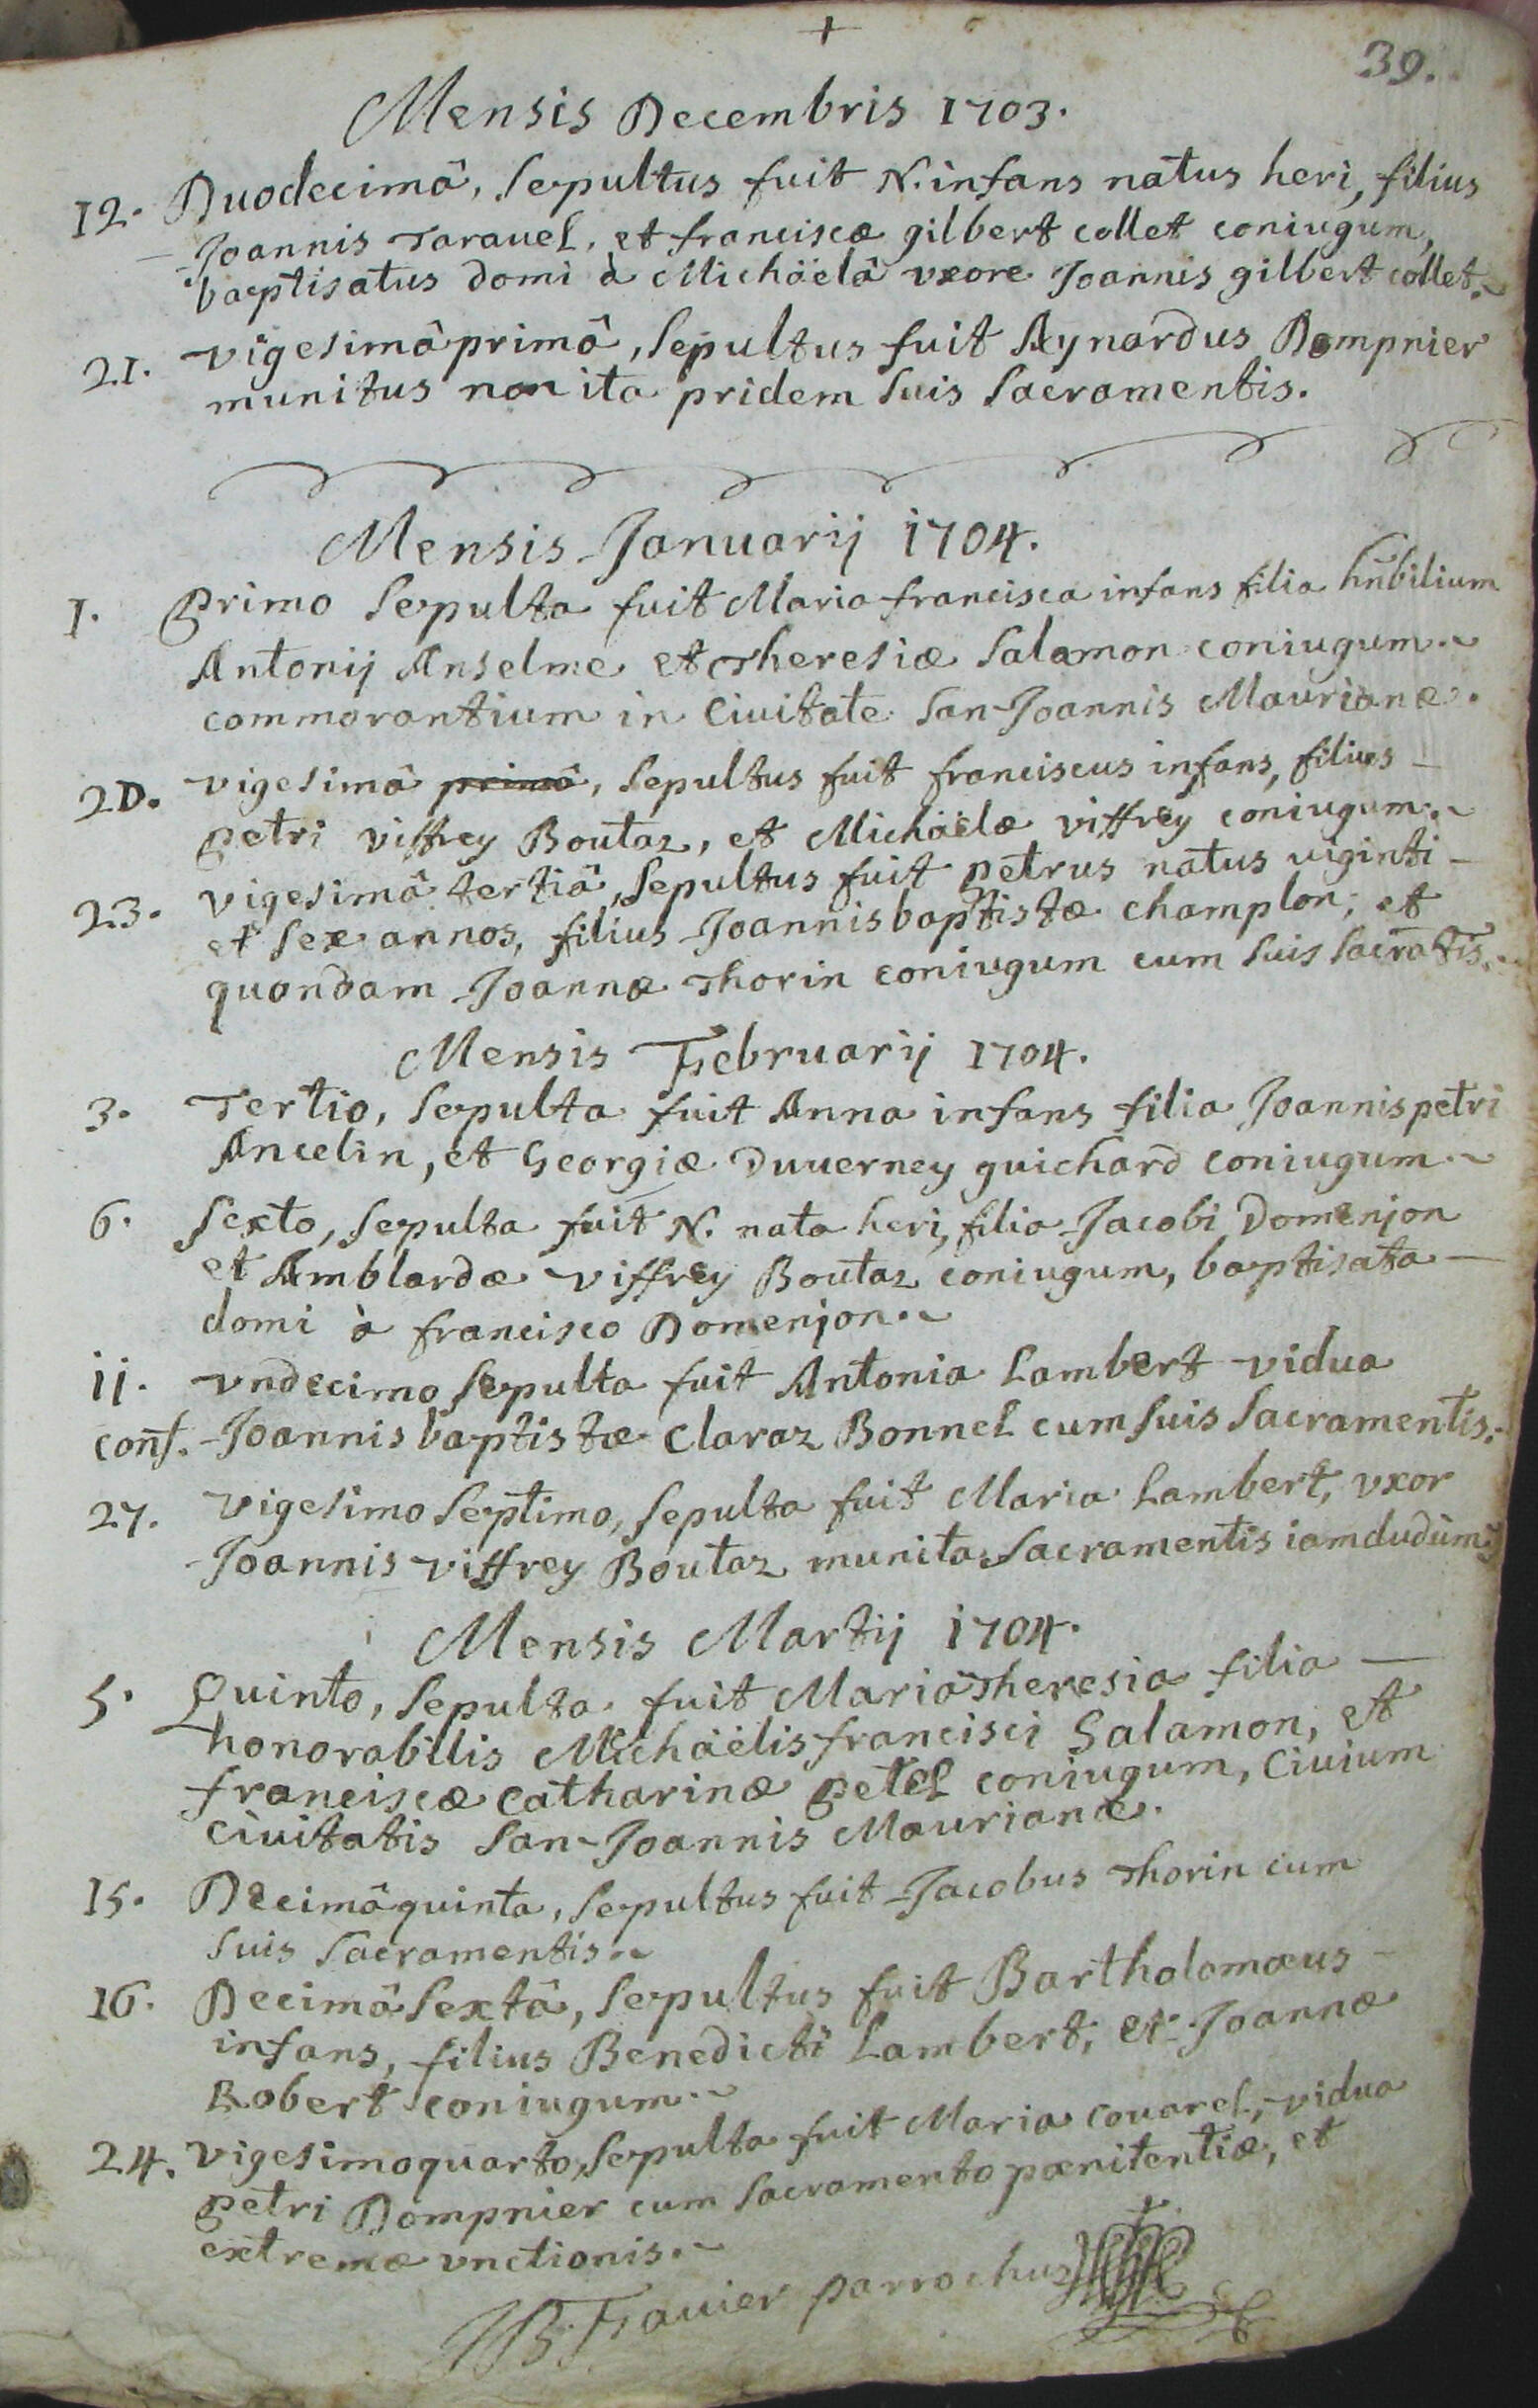 +
39.
Mensis Decembris 1703.
12. Duodecimâ, Sepultus fuit N. infans natus heri, filius
Joannis Taravel, et franciscæ gilbert collet coniugum,
baptisatus domi à Michäelâ vxore Joannis gilbert collet.
21. vigesimâprimâ, Sepultus fuit Aynardus Dompnier
munitus non ita pridem Suis Sacramentis.
Mensis Januarij 1704.
1. Primo Sepulta fuit Maria francisca infans filia hnbilium
Antonij Anselme et Theresiæ Salamon coniugum.
commorantium in Ciuitate San-Joannis Maurianæ.
20. vigesimâ primâ, Sepultus fuit franciscus infans, filius
petri viffrey Boutaz, et Michäelæ viffrey coniugum.
23. vigesimâ tertiâ, Sepultus fuit petrus natus viginti
et Sex annos, filius Joannisbaptistæ champlon, et
quondam Joannæ Thorin coniugum cum Suis Sacratis.
Mensis Februarij 1704.
3. Tertio, Sepulta fuit Anna infans filia Joannispetri
Ancelin, et Georgiæ Duuerney guichard coniugum.
6. Sexto, Sepulta fuit N. nata heri, filia Jacobi Domenjon
et Amblardæ viffrey Boutaz coniugum, baptisata
domi à francisco Domenjon.
11. vndecimo Sepulta fuit Antonia Lambert vidua
conf. Joannis baptistæ Claraz Bonnel cum Suis Sacramentis.
27. vigesimo Septimo, Sepulta fuit Maria Lambert, vxor
Joannis viffrey Boutaz munita Sacramentis iamdudùm
Mensis Martij 1704.
5. Quinto, Sepulta fuit Maria Theresia filia
honorabilis Michäelisfrancisci Salamon, et
franciscæ Catharinæ petel coniugum, Ciuium
Ciuitatis San-Joannis Maurianæ.
15. Decimâquinta, Sepultus fuit Jacobus Thorin cum
Suis Sacramentis.
16. Decimâ Sextâ, Sepultus fuit Bartholomæus
infans, filius Benedicti Lambert, et Joannæ
Robert coniugum.
24. vigesimoquarto, Sepulta fuit Maria Couarel, vidua
petri Dompnier cum Sacramento pœnitentiæ, et
extremæ vnctionis.
JB. Fauier parrochus